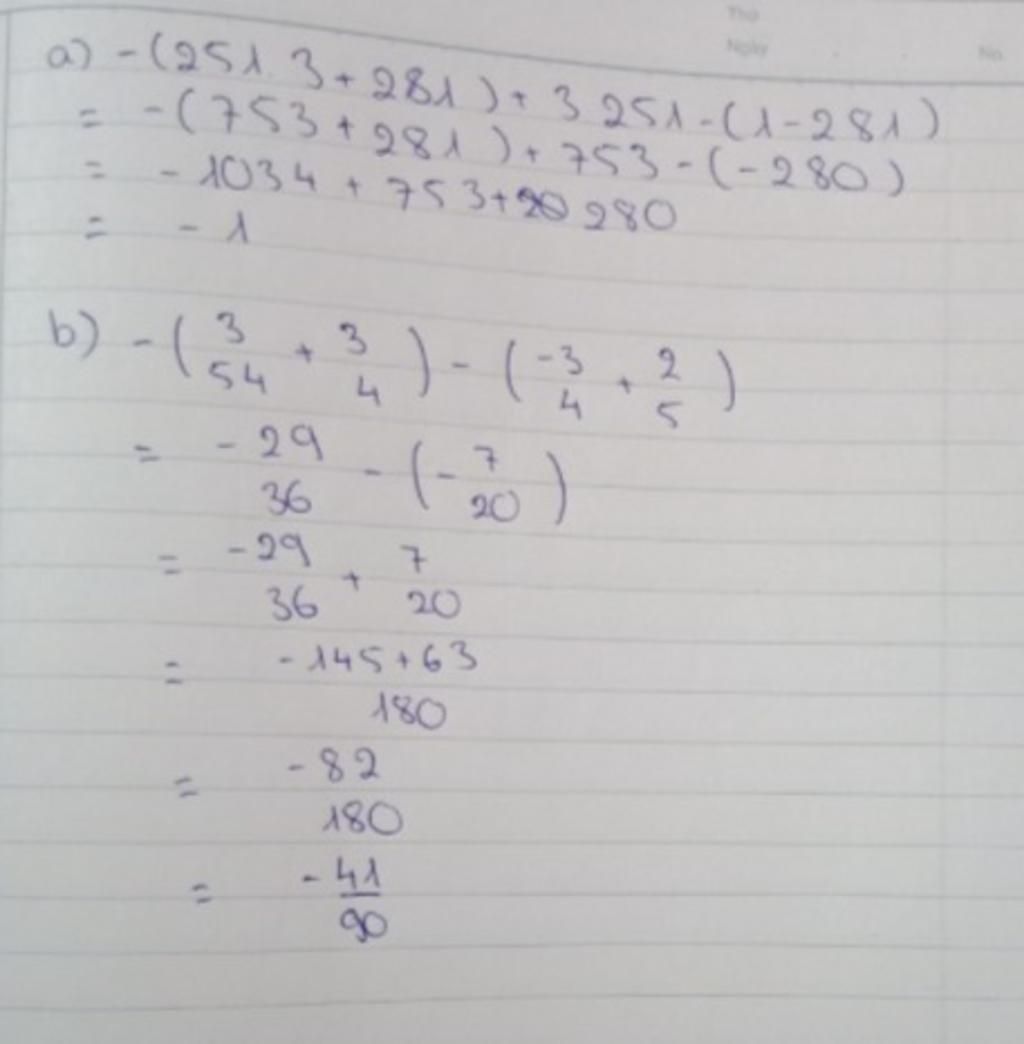 Thứ
Ngày . . No.
a) -(251. 3 + 281) + 3 251 - (1 - 281)
= -(753 + 281) + 753 - (-280)
= -1034 + 753 + 280
= -1
b) -(3/54 + 3/4) - (-3/4 + 2/5)
= -29/36 - (-7/20)
= -29/36 + 7/20
= -145+63/180
= -82/180
= -41/90